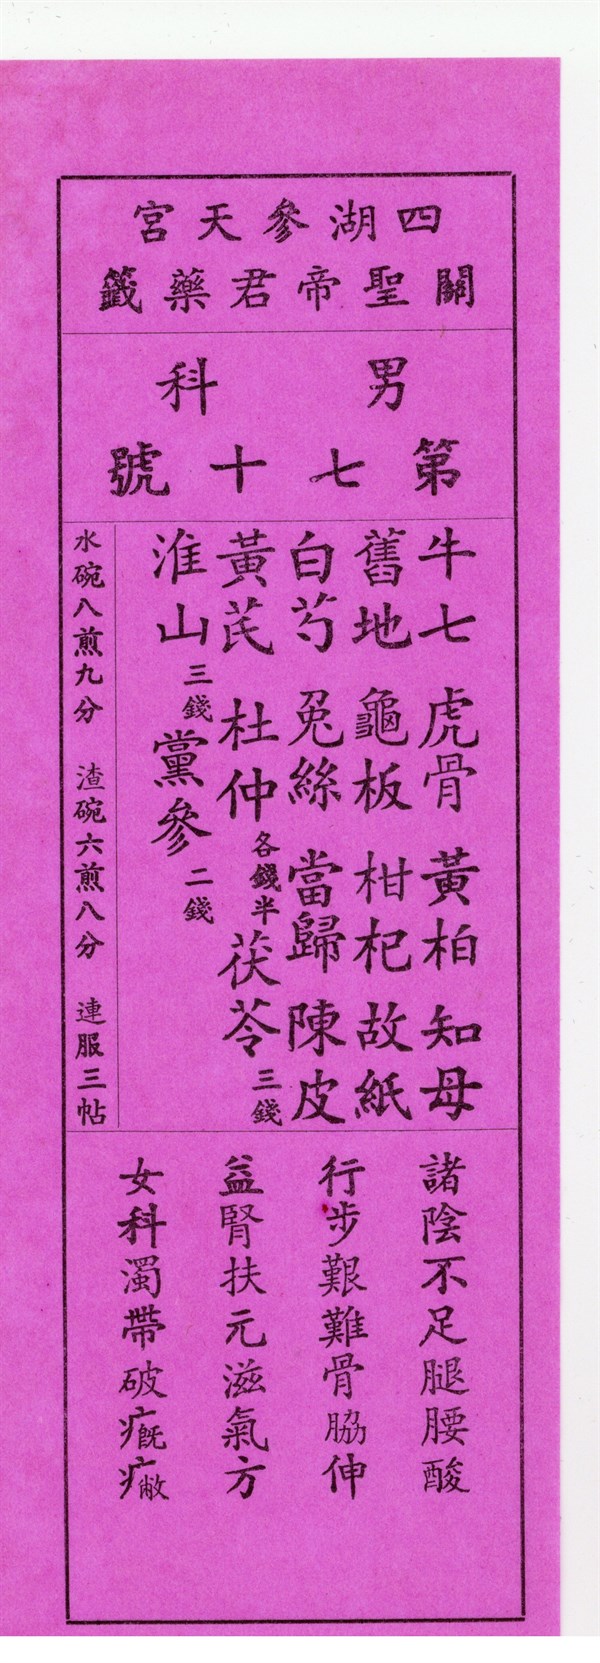 四湖參天宮
關聖帝君藥籤
男科
第七十號
牛七 虎骨 黃柏 知母
舊地 龜板 柑杞 故紙
白芍 兔絲 當歸 陳皮
黃芪 杜仲 各錢半 茯苓 三錢
淮山 三錢 黨參 二錢
水碗八煎九分 渣碗六煎八分 連服三帖
諸陰不足腿腰酸
行步艱難骨脇伸
益腎扶元滋氣方
女科濁帶破